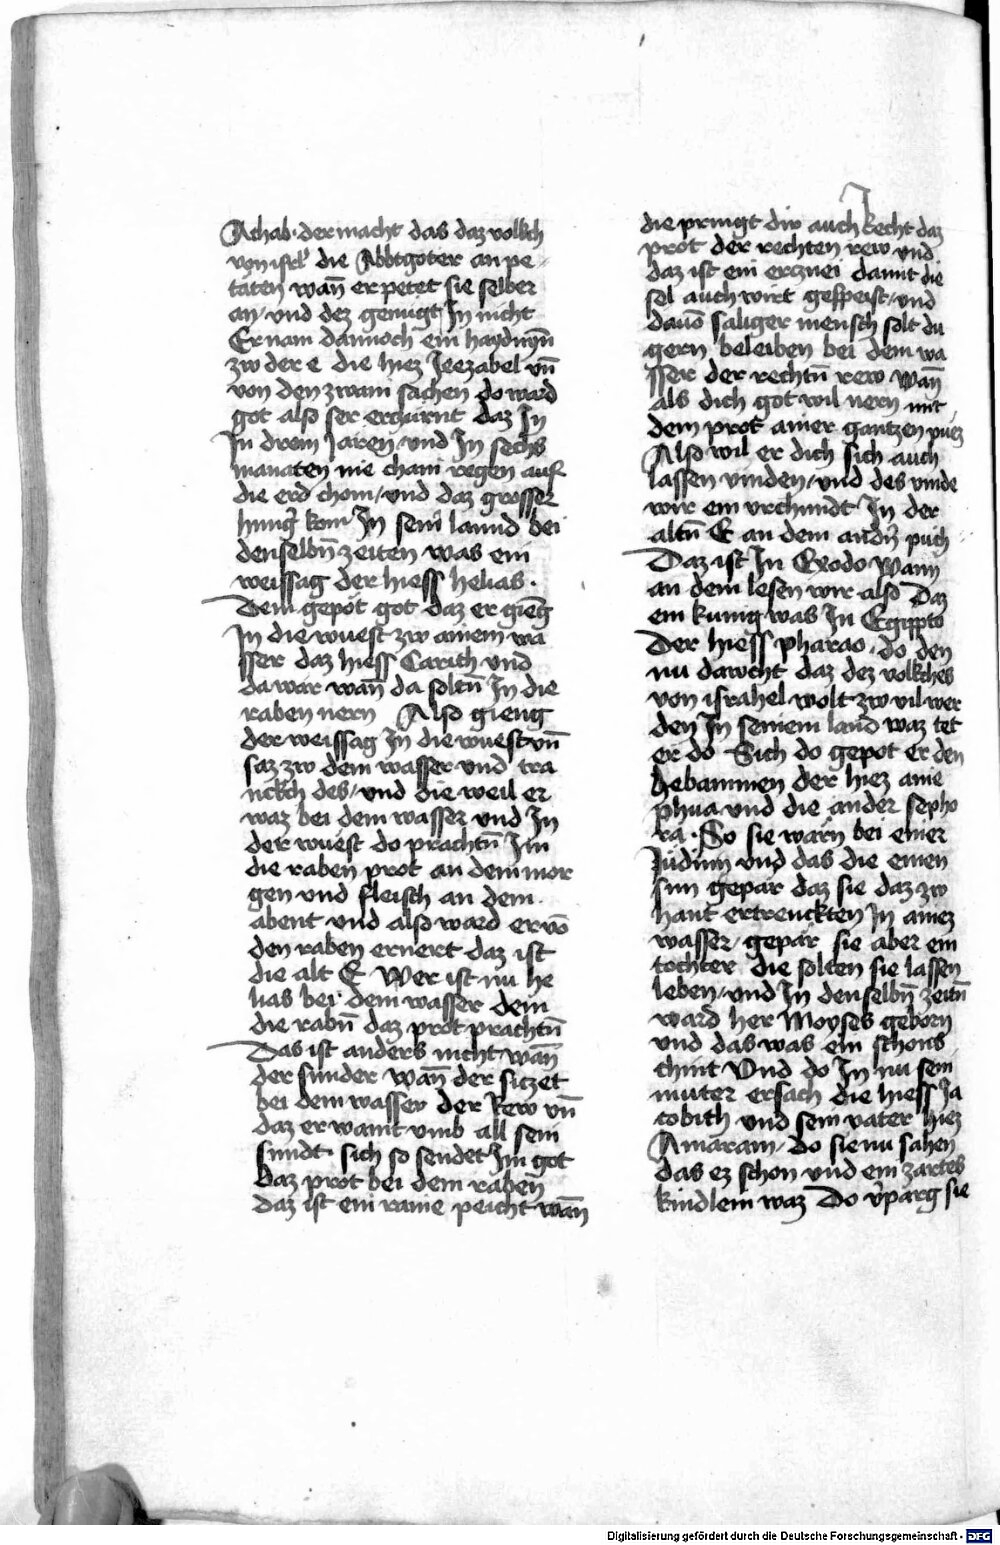 Achab · der macht das daz volkch
von isrl̄ die Abbtgöter an pe
täten wan̄ er petet sie selber
an / vnd dez genuͤgt In nicht
Er nam dannoch ein haydnyn̄
zw der e die hiez Jeezabel vn̄
von den zwain sachen do ward
got also ser erczürnt daz In
In drein Jaren vnd In sechs
manaten nie chain regen auf
die erd chom / vnd daz grosser
hung̉ kom In sein lannd bei
denselbn̄ zeiten was ein
weissag der hiess helias ·
Dem gepot got daz er gieng
In die wuest zw ainem wa
sser daz hiess Carith vnd
da war wan̄ da soltn̄ In die
raben nern Also gieng
der weissag In die wuest vn̄
saz zw dem wasser vnd tra
nckch des / vnd die weil er
waz bei dem wasser vnd In
der wuest do prachtn̄ Im
die raben prot an dem mor
gen vnd fleisch an dem
abent vnd also ward er vō
den raben ernert daz ist
die alt E Wer ist nu he
lias bei dem wasser dem
die rabn̄ daz prot prachtn̄
Das ist anders nicht wan̄
der sunder wan̄ der siczet
bei dem wasser der Rew vn̄
daz er waint vmb all sein
sundt · sich so sendet Im got
daz prot bei dem raben
daz ist ein raine peicht wan̄
die pringt dir auch Recht daz
prot der rechten rew vnd
daz ist ein ercznei damit die
sel auch wirt gespeist / vnd
dauō saliger mensch solt du
gern beleiben bei dem wa
sser der rechtn̄ rew wan̄
als dich got wil nern mit
dem prot ainer gantzen puez
Also wil er dich sich auch
lassen vinden / vnd des vinde
wir ein vrchundt In der
altn̄ E an dem andn̄ puch
Daz ist In Exodo Wann
an dem lesen wir also Daz
ein kunig was In Egippto
Der hiess pharao · do den
nu dawcht daz dez volkches
von israhel wolt zw vil wer
den In seinem land waz tet
er do Sich do gepot er den
hebammen der hiez aine
phua vnd die ander sepho
ra · So sie warn bei einer
Jüdinn vnd das die einen
sun gepar daz sie daz zw
hant ertrenckten In ainez
wasser / gepar sie aber ein
tochter die solten sie lassen
leben / vnd In denselbn̄ zeitn̄
ward her Moyses geborn
vnd das was ein schons
chint Vnd do In nu sein
muter ersach die hiess Ja
cobith vnd sein vater hiez
Amaram / do sie nu sahen
das ez schon vnd ein zartes
kindlein waz Do v̉parg sie
Digitalisierung gefördert durch die Deutsche Forschungsgemeinschaft - DFG